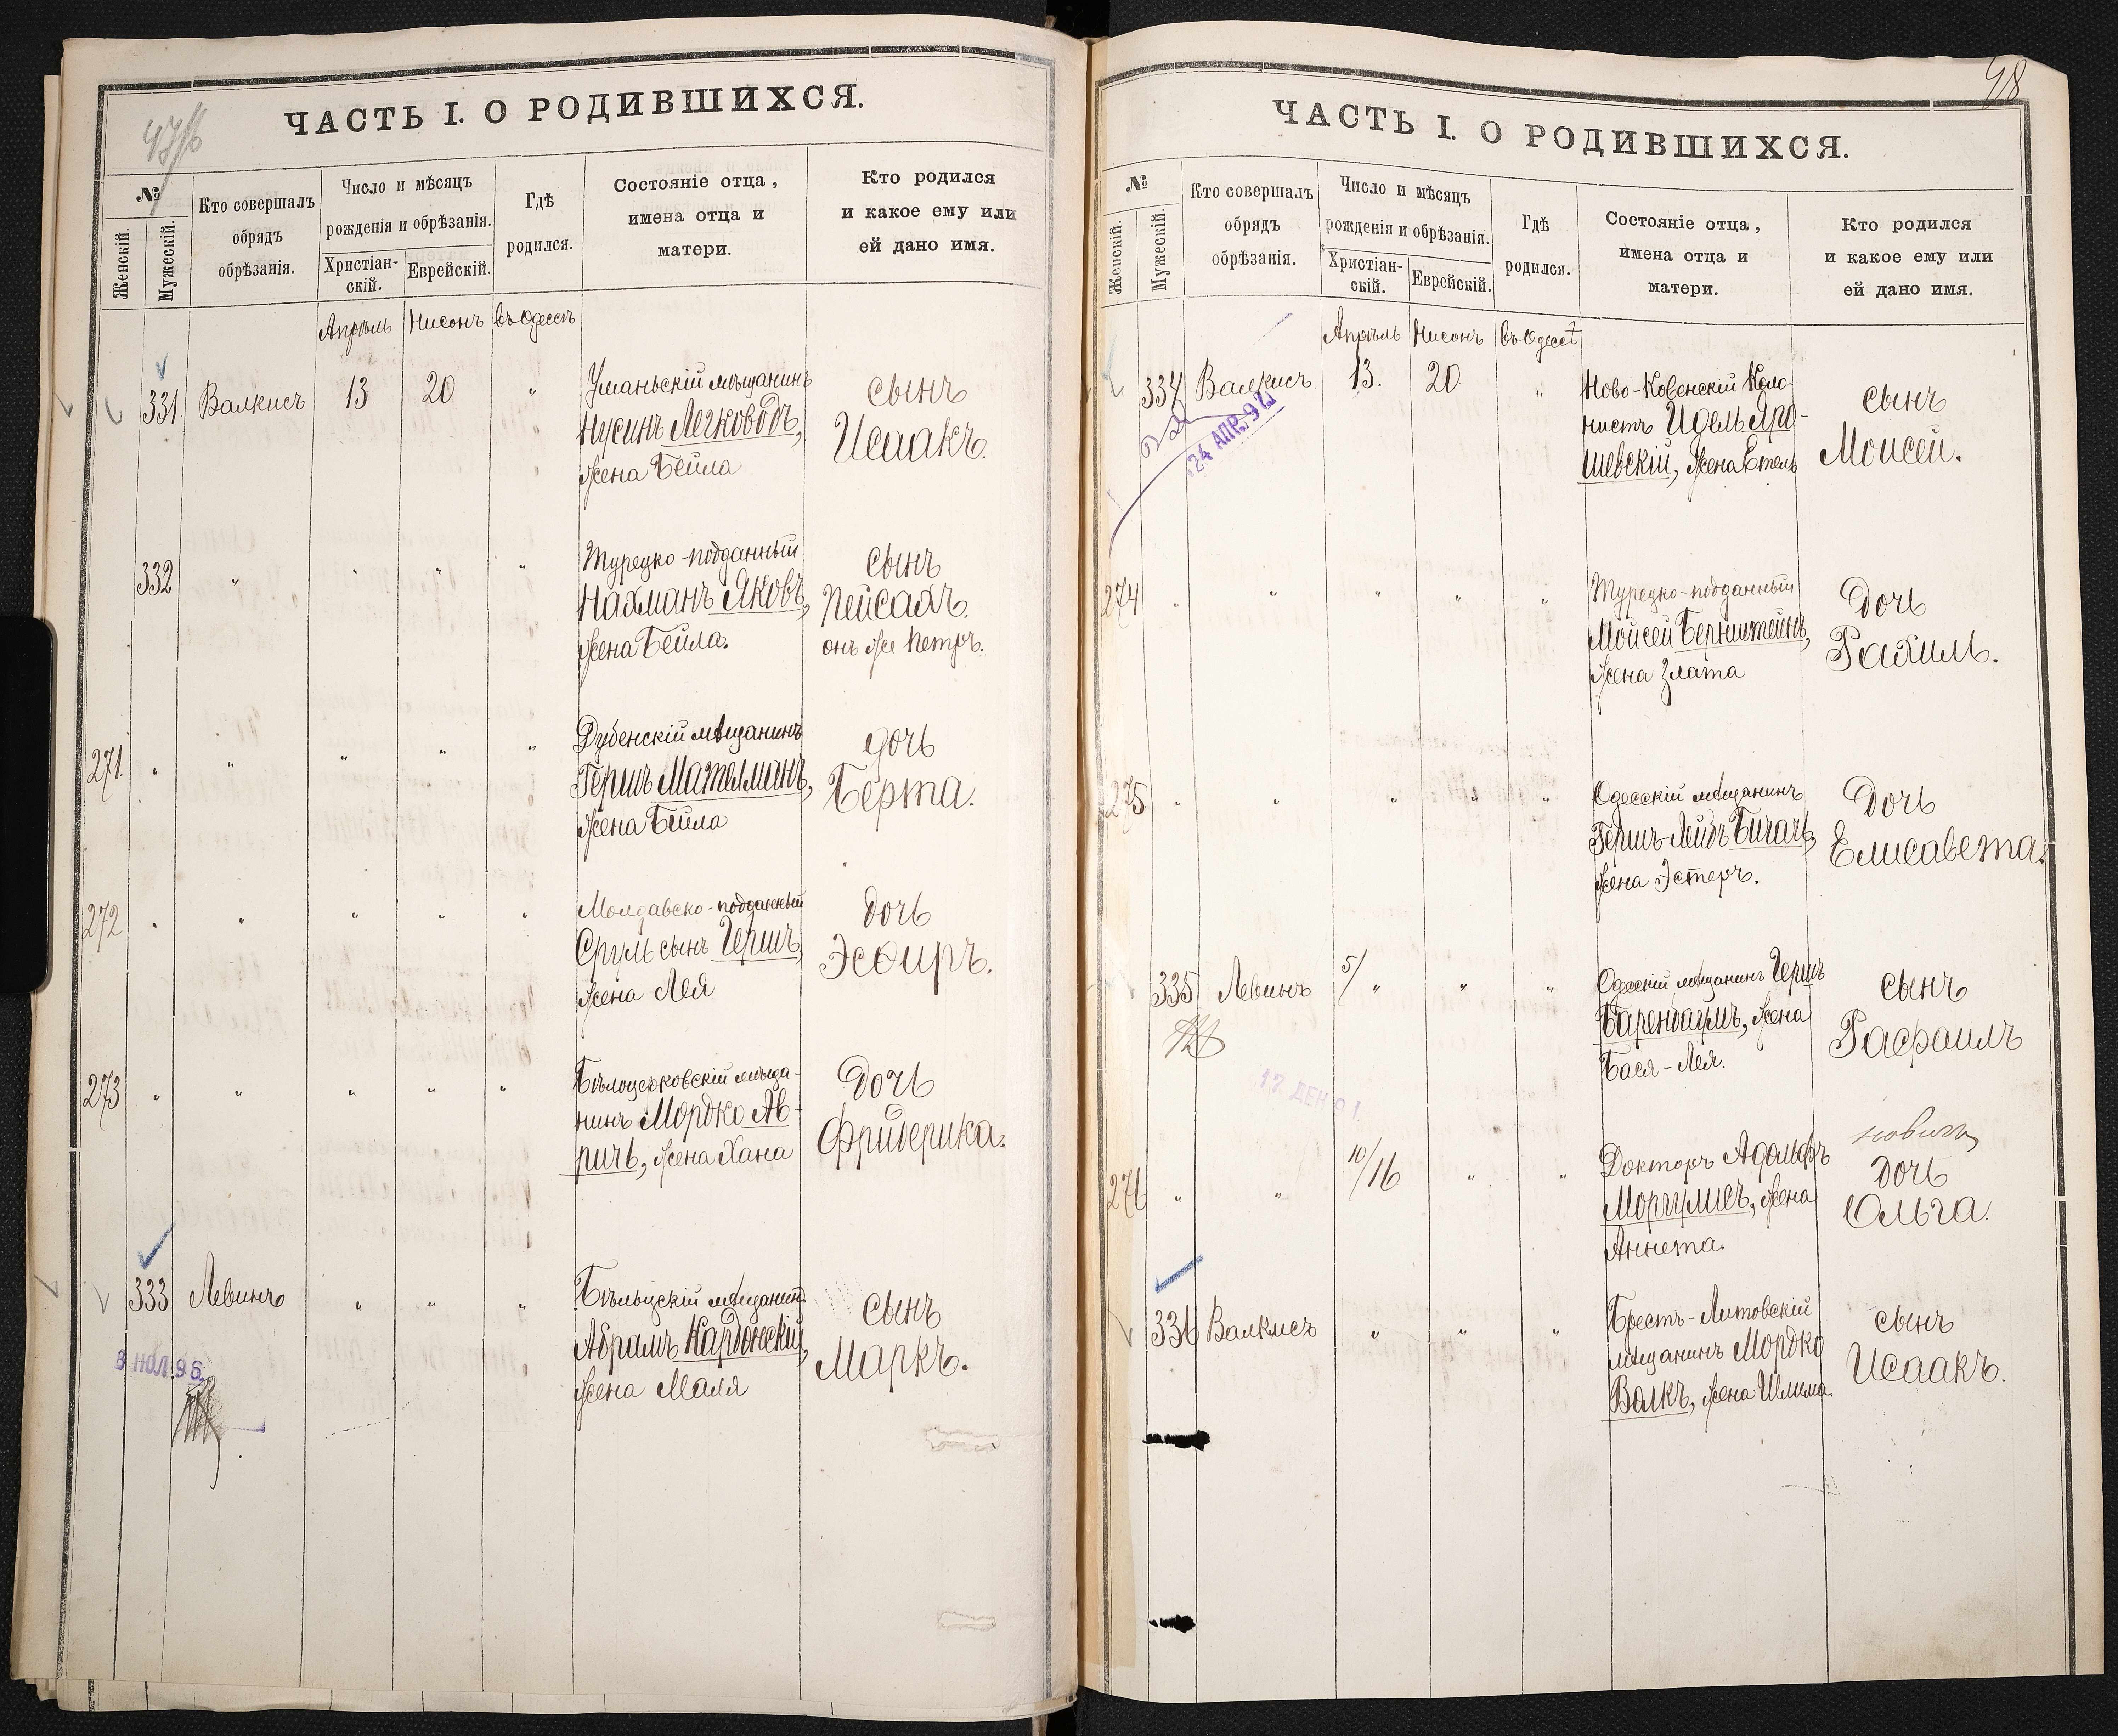 47/б
ЧАСТЬ I. О РОДИВШИХСЯ.
№
Женскій.
Мужескій.
Кто совершалъ
обрядъ
обрѣзанія.
Число и мѣсяцъ
рожденія и обрѣзанія.
Христіан-
скій.
Еврейскій.
Гдѣ
родился.
Состояніе отца,
имена отца и
матери.
Кто родился
и какое ему или
ей дано имя.
Апрѣль Нисонъ въ Одессѣ
331 Валкисъ 13 20 " Уманьскій мѣщанинъ
Нусинъ Легководъ,
жена Бейла
сынъ
Исаакъ.
332 " " " " Турецко-подданный
Нахманъ Яковъ,
жена Бейла.
сынъ
Пейсахъ.
онъ же Петръ.
271. " " " " " Дубенскій мѣщанинъ
Гершъ Мателманъ,
жена Бейла
дочь
Берта.
272 " " " " " Молдавско-подданный
Сруль сынъ Гершъ,
жена Лея
дочь
Эсѳиръ.
273 " " " " " Бѣлоцерковскій мѣща-
нинъ Мордко Ав-
ричъ, жена Хана
Дочь
Фридерика.
333 Левинъ " " " Бѣльцскій мѣщанинъ
Абрамъ Кардонскій,
жена Маля
сынъ
Маркъ.
96
48
ЧАСТЬ I. О РОДИВШИХСЯ.
№
Женскій.
Мужескій.
Кто совершалъ
обрядъ
обрѣзанія.
Число и мѣсяцъ
рожденія и обрѣзанія.
Христіан-
скій.
Еврейскій.
Гдѣ
родился.
Состояніе отца,
имена отца и
матери.
Кто родился
и какое ему или
ей дано имя.
Апрѣль Нисонъ въ Одессѣ
334 Валкисъ 13. 20 " Ново-Ковенскій Коло-
нистъ Идель Яро-
шевскій, жена Етель
сынъ
Моисей.
24 АПР. 92
274 " " " " " Турецко-подданный
Мойсей Бернштейнъ,
жена Злата
Дочь
Рахиль.
275 " " " " " Одесскій мѣщанинъ
Гершъ-Лейбъ Бичачъ,
жена Эстеръ.
Дочь
Елисавета.
335 Левинъ 5/" " " Одесскій мѣщанинъ Гершъ
Баренбаумъ, жена
Бася-Лея.
сынъ
Рафаилъ
276 " " 10/16 " " Докторъ Адольфъ
Моргулисъ, жена
Аннета.
Дочь
Ольга.
336 Валкисъ " " " Брестъ-Литовскій
мѣщанинъ Мордко
Волкъ, жена Шлима.
сынъ
Исаакъ.